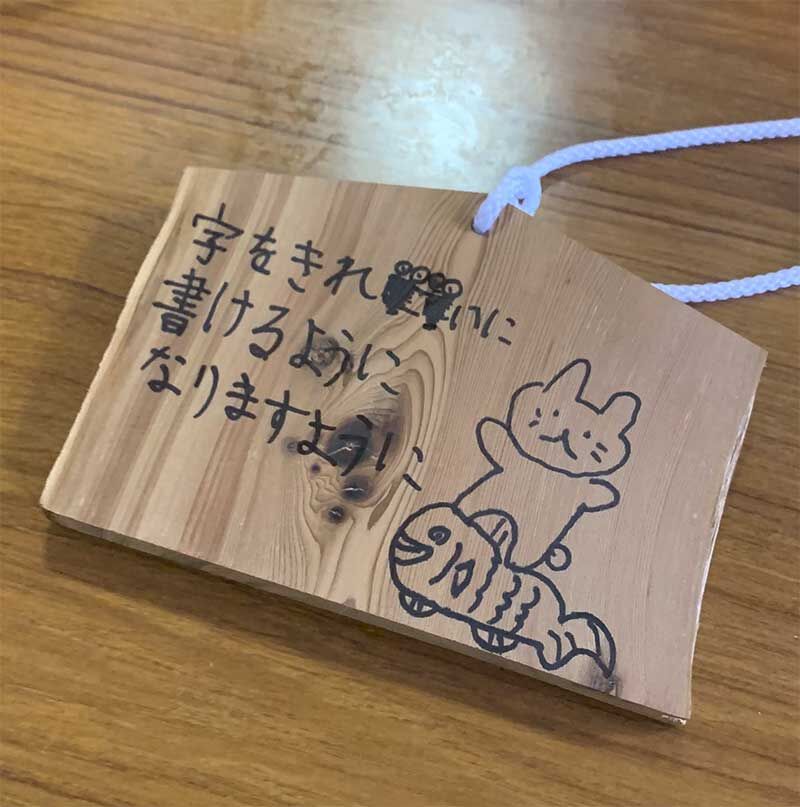 字をきれいに
書けるように
なりますように